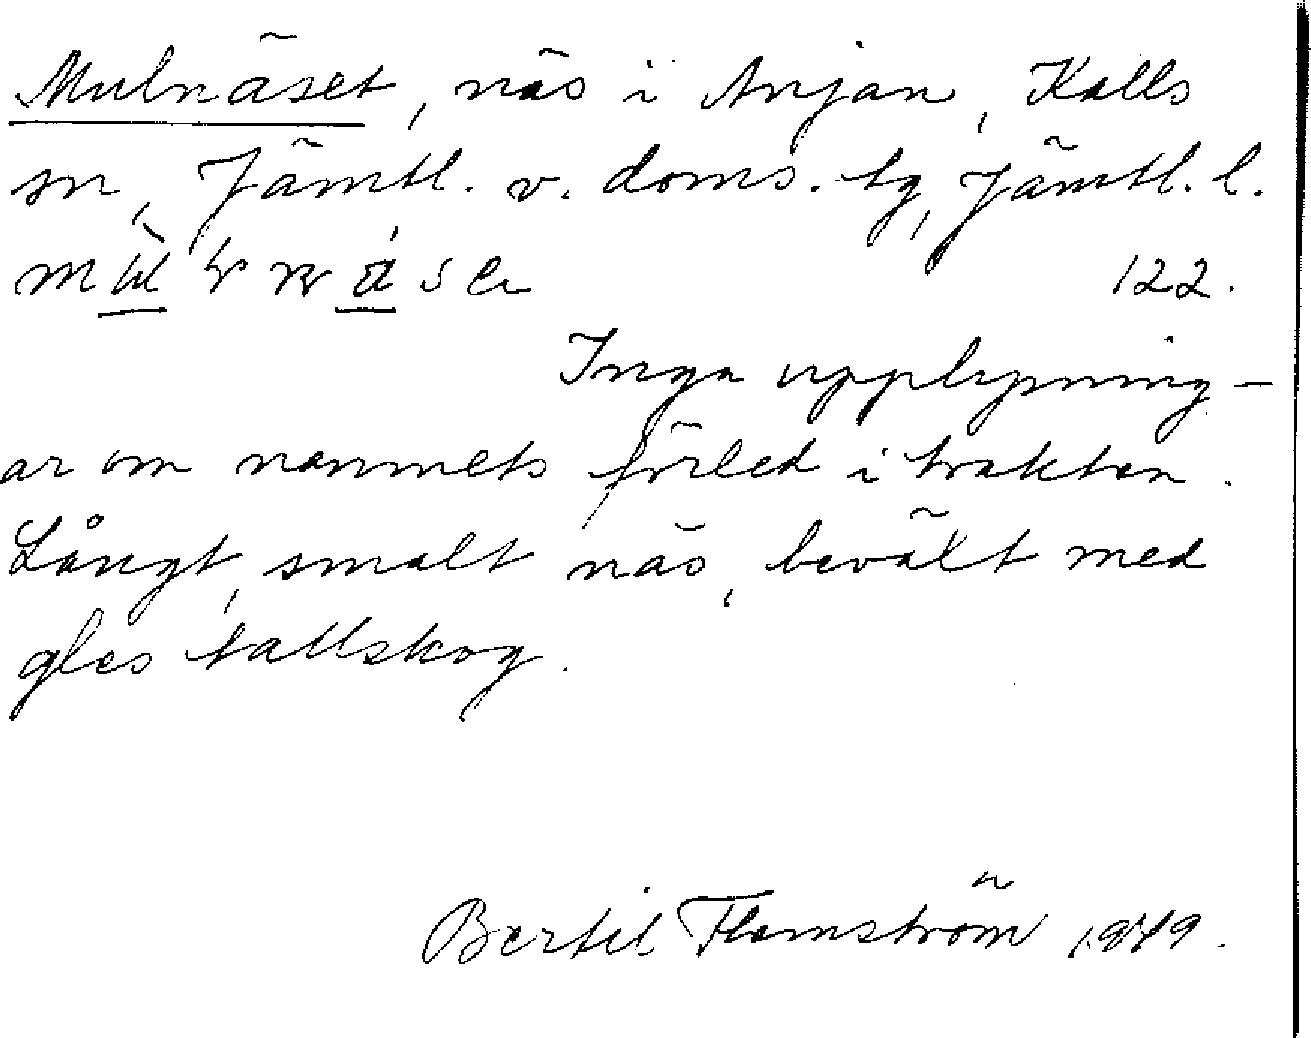 Mulnäset, näs i Anjan, Kalls
sn, Jämtl. v. doms. tg, Jämtl. l.
122.
Inga upplysning-
ar om namnets förled i trakten.
Långt, smalt näs, beväxt med
gles tallskog.
Bertil Flemström 1949.